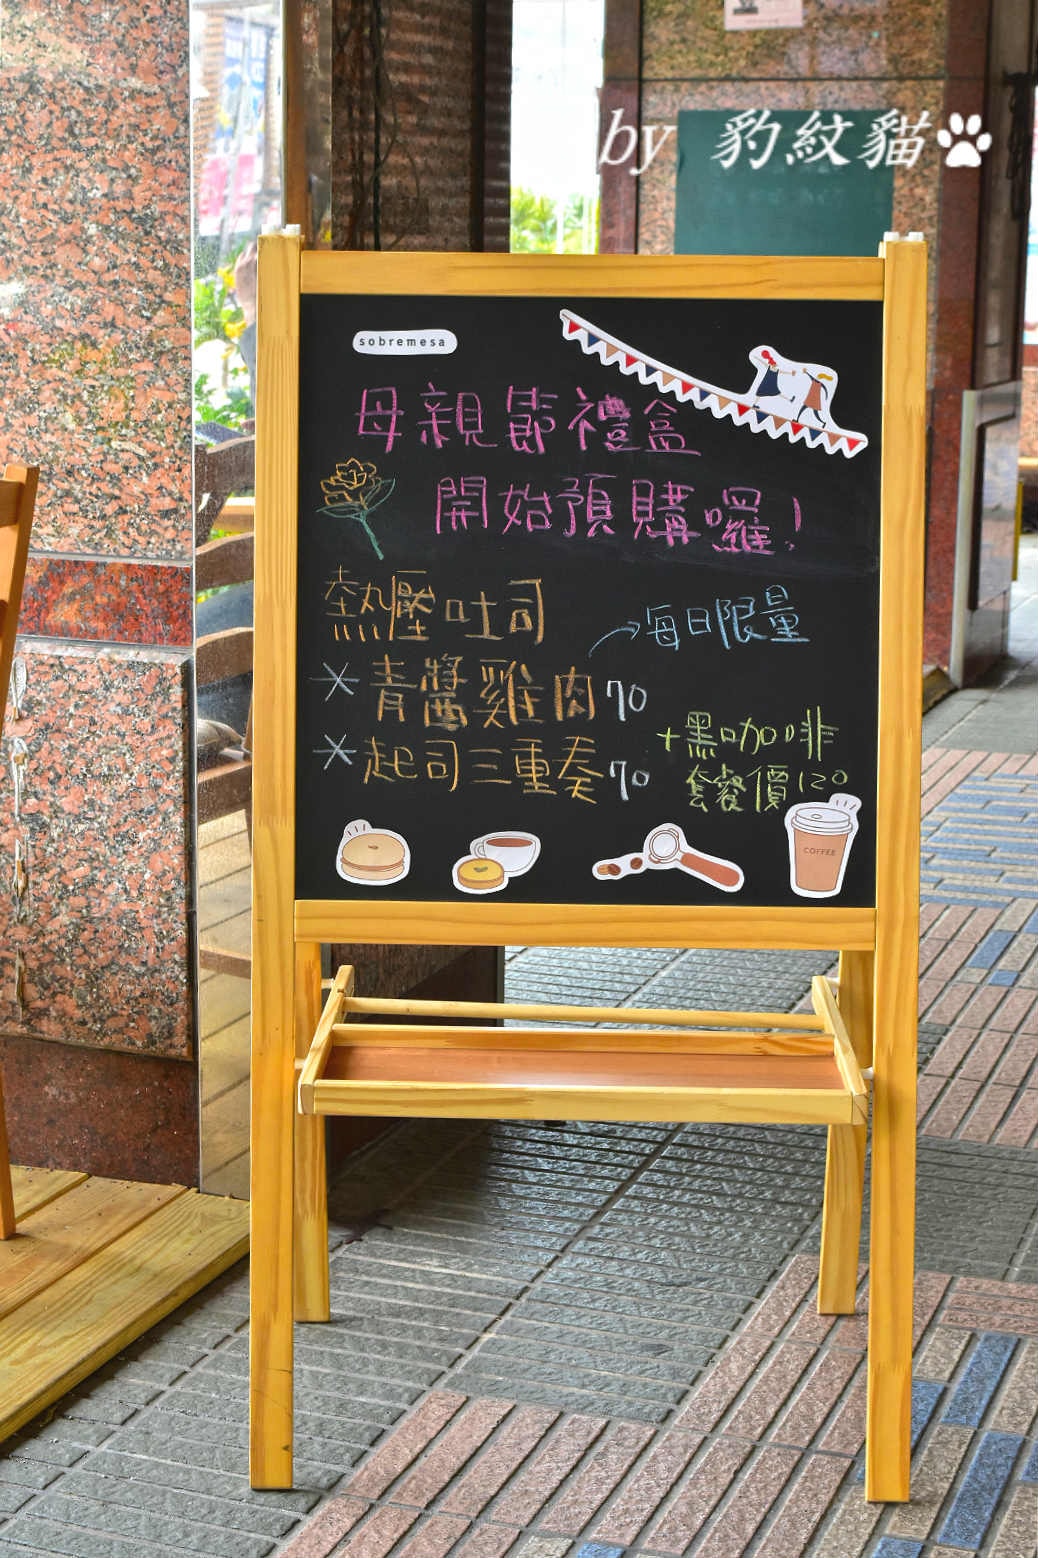 by 豹紋貓
sobremesa
母親節禮盒
開始預購囉!
熱壓吐司
每日限量
*青醬雞肉70
*起司三重奏70
+黑咖啡
套餐價120
COFFEE